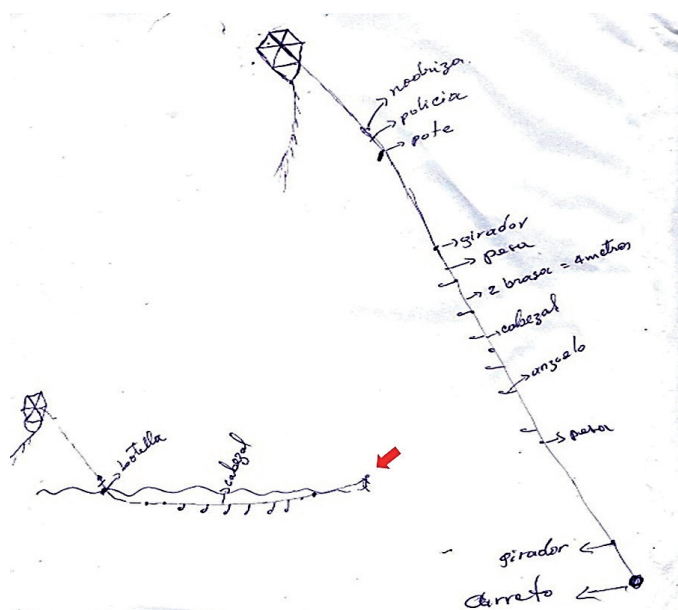 nodriza
policia
pote
girador
pesa
2 brasa = 4 metros
cabezal
anzuelo
pesa
girador
carreto
botella
cabezal